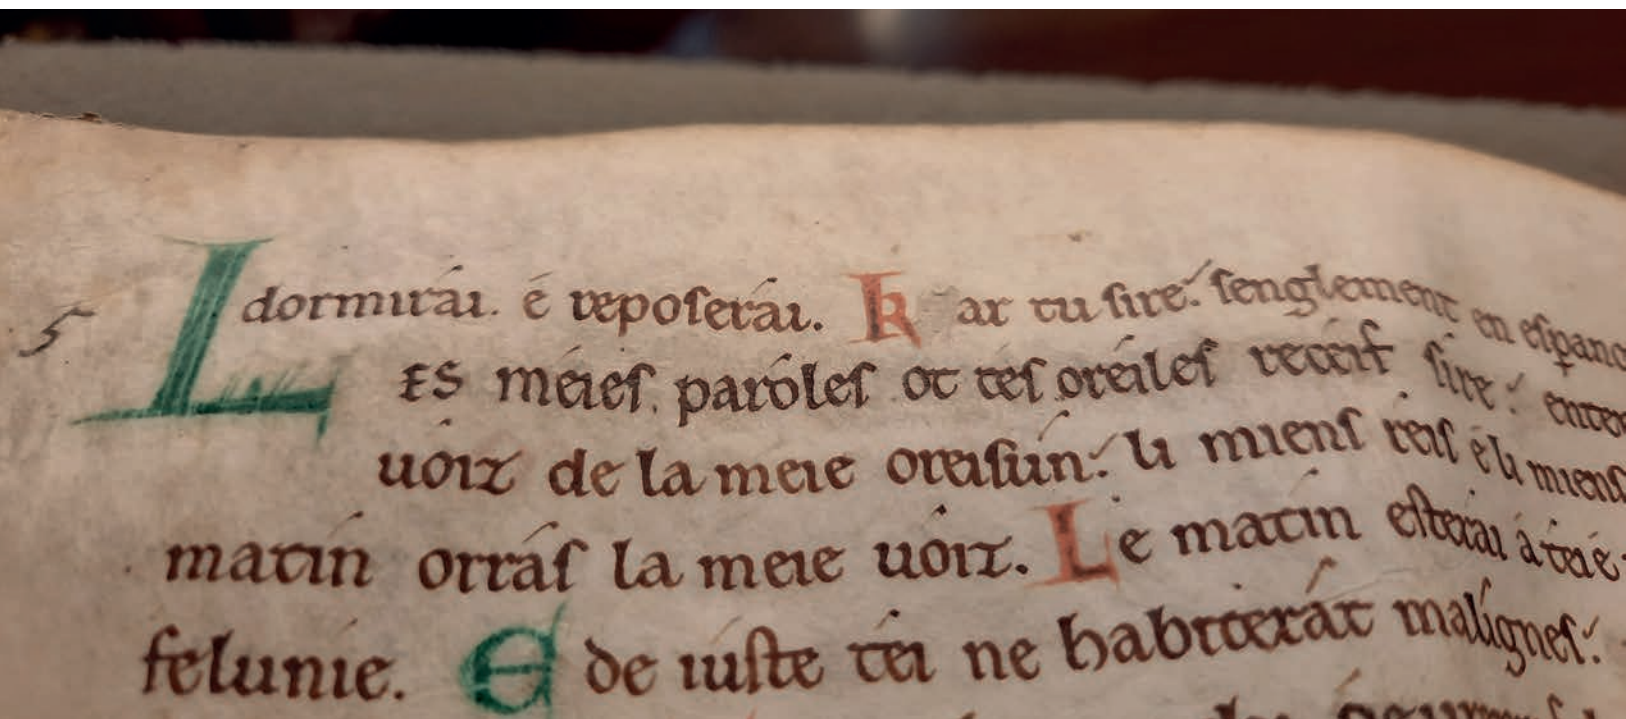 5
dormirái. é reposerái. Kar tu sire: senglement en espanc
LES méies paróles ot tes oréiles receif sire: enten
uóiz de la meie oreisún: li miens réis é li miens
matín orrás la meie uóiz. Le matín esterái á téi é
felunie. E de iúste téi ne habiterát malígnes: